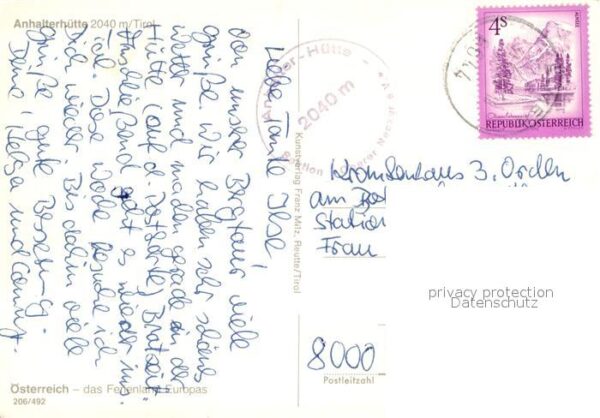 Anhalterhütte 2040 m/Tirol
Liebe Tante Ilse!
Von unserer Bergtour viele
Grüße. Wir haben sehr schönes
Wetter und machen gerade in der
Hütte (auf d. Postkarte) Brotzeit.
Anschließend geht es wieder ins
Tal. Diese Woche besuche ich
Dich wieder. Bis dahin viele
Grüße, gute Besserung.
Deine Helga und
Österreich – das Ferienland Europas
206/492
Kunstverlag Franz Milz, Reutte/Tirol
Anhalter-Hütte
2040 m
4S
ALMSEE
REPUBLIK ÖSTERREICH
Krankenhaus 3. Orden
am
Station
Frau
privacy protection
Datenschutz
8000
Postleitzahl